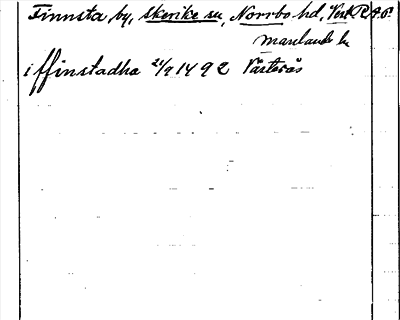 Finnsta by, Skerike sn, Norrbo hd, Vstm RAp.
i ffinstadha 21/9 1492 Västerås